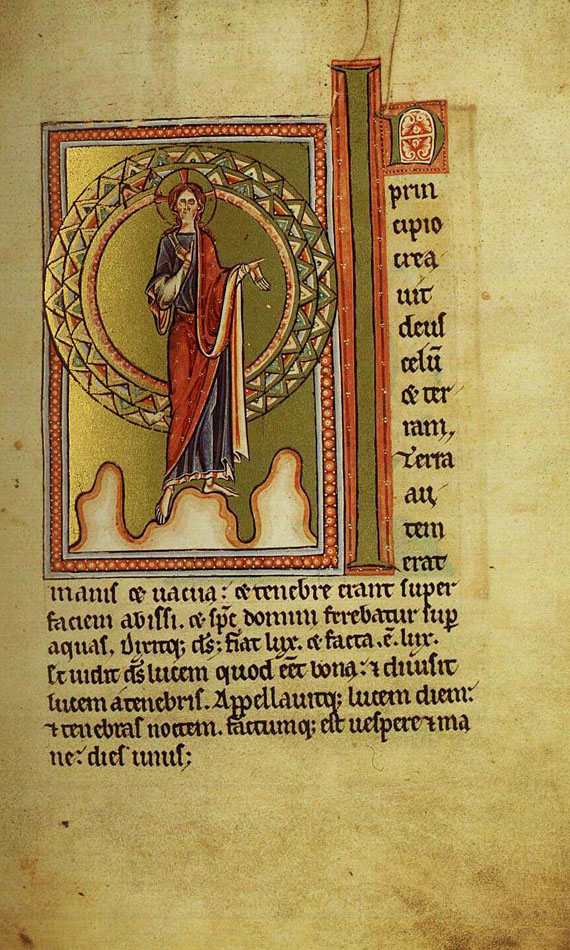 IN
prin
cipio
crea
uit
deus
celū
& ter
ram,
Terra
au
tem
erat
inanis & uacua: & tenebre erant super
faciem abissi. & spc̄ domini ferebatur sup
aquas. Dixitq; ds̄: fiat lux. & facta .ē. lux.
et uidit ds̄ lucem quod eēt bona: ⁊ diuisit
lucem a tenebris. Appellauitq; lucem diem:
⁊ tenebras noctem. factumq; est uespere ⁊ ma
ne: dies unus;